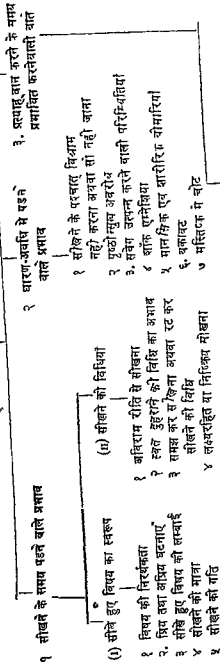 १ सीखने के समय पड़ने वाले प्रभाव
(i) सीखे हुए विषय का स्वरूप
१ विषय की निरर्थकता
२. प्रिय तथा अप्रिय घटनाएँ
३ सीखे हुए विषय की लम्बाई
४ सीखने की मात्रा
५ सीखने की गति
(ii) सीखने की विधियाँ
१ अविराम रीति से सीखना
२ स्वत दुहराने की विधि का अभाव
३ समझ कर सीखना अथवा रट कर
सीखने की विधि
४ लक्ष्यरहित या निष्क्रिय सीखना
२ धारण-अवधि मे पडने
वाले प्रभाव
१ सीखने के पश्चात् विश्राम
नहीं करना अथवा सो नही जाना
२ पृष्ठोन्मुख अवरोध
३. संवेग उत्पन्न करने वाली परिस्थितियाँ
४ शॉक एम्नेशिया
५ मानसिक एवं शारीरिक बीमारियाँ
६. थकावट
७ मस्तिष्क मे चोट
३. प्रत्याह्वान करने के समय
प्रभावित करनेवाली बातें